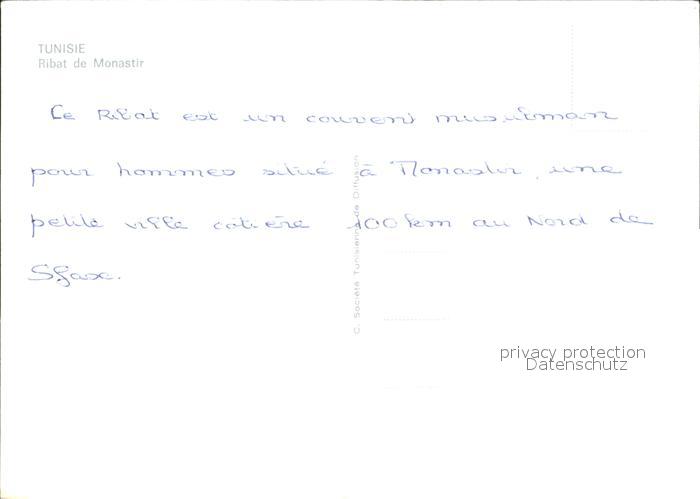 TUNISIE
Ribat de Monastir
Le Ribat est un couvent musulman
pour hommes situé à Monastir, une
petite ville côtière 100 km au Nord de
Sfax.
C. Société Tunisienne de Diffusion
privacy protection
Datenschutz